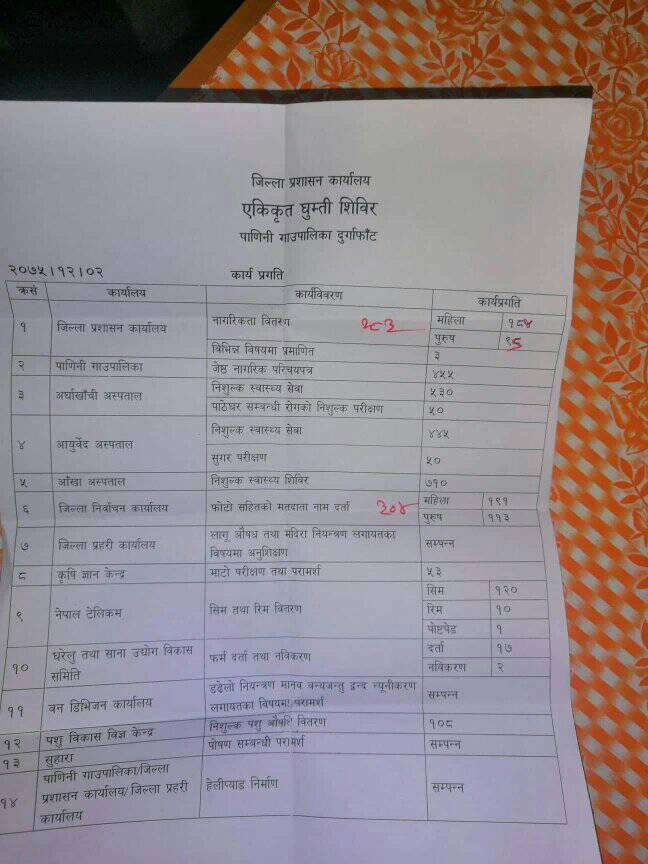 जिल्ला प्रशासन कार्यालय
एकिकृत घुम्ती शिविर
पाणिनी गाउपालिका दुर्गाफाँट
२०७५।१२।०२
कार्य प्रगति
क्रसं कार्यालय कार्यविवरण कार्यप्रगति
१ जिल्ला प्रशासन कार्यालय नागरिकता वितरण २८३ महिला १८५
पुरुष ९८
विभिन्न विषयमा प्रमाणित ३
२ पाणिनी गाउपालिका जेष्ठ नागरिक परिचयपत्र ४५५
३ अर्घाखाँची अस्पताल निशुल्क स्वास्थ्य सेवा ५३०
पाठेघर सम्बन्धी रोगको निशुल्क परीक्षण ५०
४ आयुर्वेद अस्पताल निशुल्क स्वास्थ्य सेवा ४४५
सुगर परीक्षण ५०
५ आँखा अस्पताल निशुल्क स्वास्थ्य शिविर ७१०
६ जिल्ला निर्वाचन कार्यालय फोटो सहितको मतदाता नाम दर्ता ३०४ महिला १९१
पुरुष ११३
७ जिल्ला प्रहरी कार्यालय लागू औषध तथा मदिरा नियन्त्रण लगायतका
विषयमा अनुशिक्षण सम्पन्न
८ कृषि ज्ञान केन्द्र माटो परीक्षण तथा परामर्श ५३
९ नेपाल टेलिकम सिम तथा रिम वितरण सिम १२०
रिम १०
पोष्टपेड १
१० घरेलु तथा साना उद्योग विकास
समिति फर्म दर्ता तथा नविकरण दर्ता १७
नविकरण २
११ वन डिभिजन कार्यालय डढेलो नियन्त्रण मानव वन्यजन्तु द्वन्द न्यूनीकरण
लगायतका विषयमा परामर्श सम्पन्न
१२ पशु विकास विज्ञ केन्द्र निशुल्क पशु औषधि वितरण १०८
१३ सुहारा पोषण सम्बन्धी परामर्श सम्पन्न
१४ पाणिनी गाउपालिका/जिल्ला
प्रशासन कार्यालय/जिल्ला प्रहरी
कार्यालय हेलीप्याड निर्माण सम्पन्न